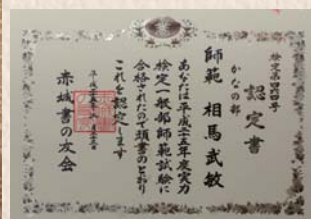 検定第四四号
認定書
かなの部
師範 相馬武敏
あなたは平成二十五年度実力
検定一般部師範試験に
合格されたので頭書のとおり
これを認定します
平成二十五年 月 日
赤城書の友会